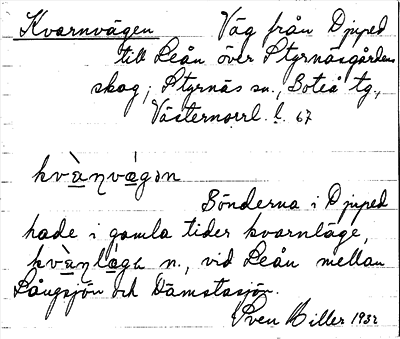 Kvarnvägen Väg från Djuped
till Leån över Styrnäsgårdens
skog; Styrnäs sn., Boteå tg.,
Västernorrl. l. 67
kvàη̣vǻgən
Bönderna i Djuped
hade i gamla tider kvarnläge,
n., vid Leån mellan
Långsjön och Dämstasjön.
Sven Hiller 1932